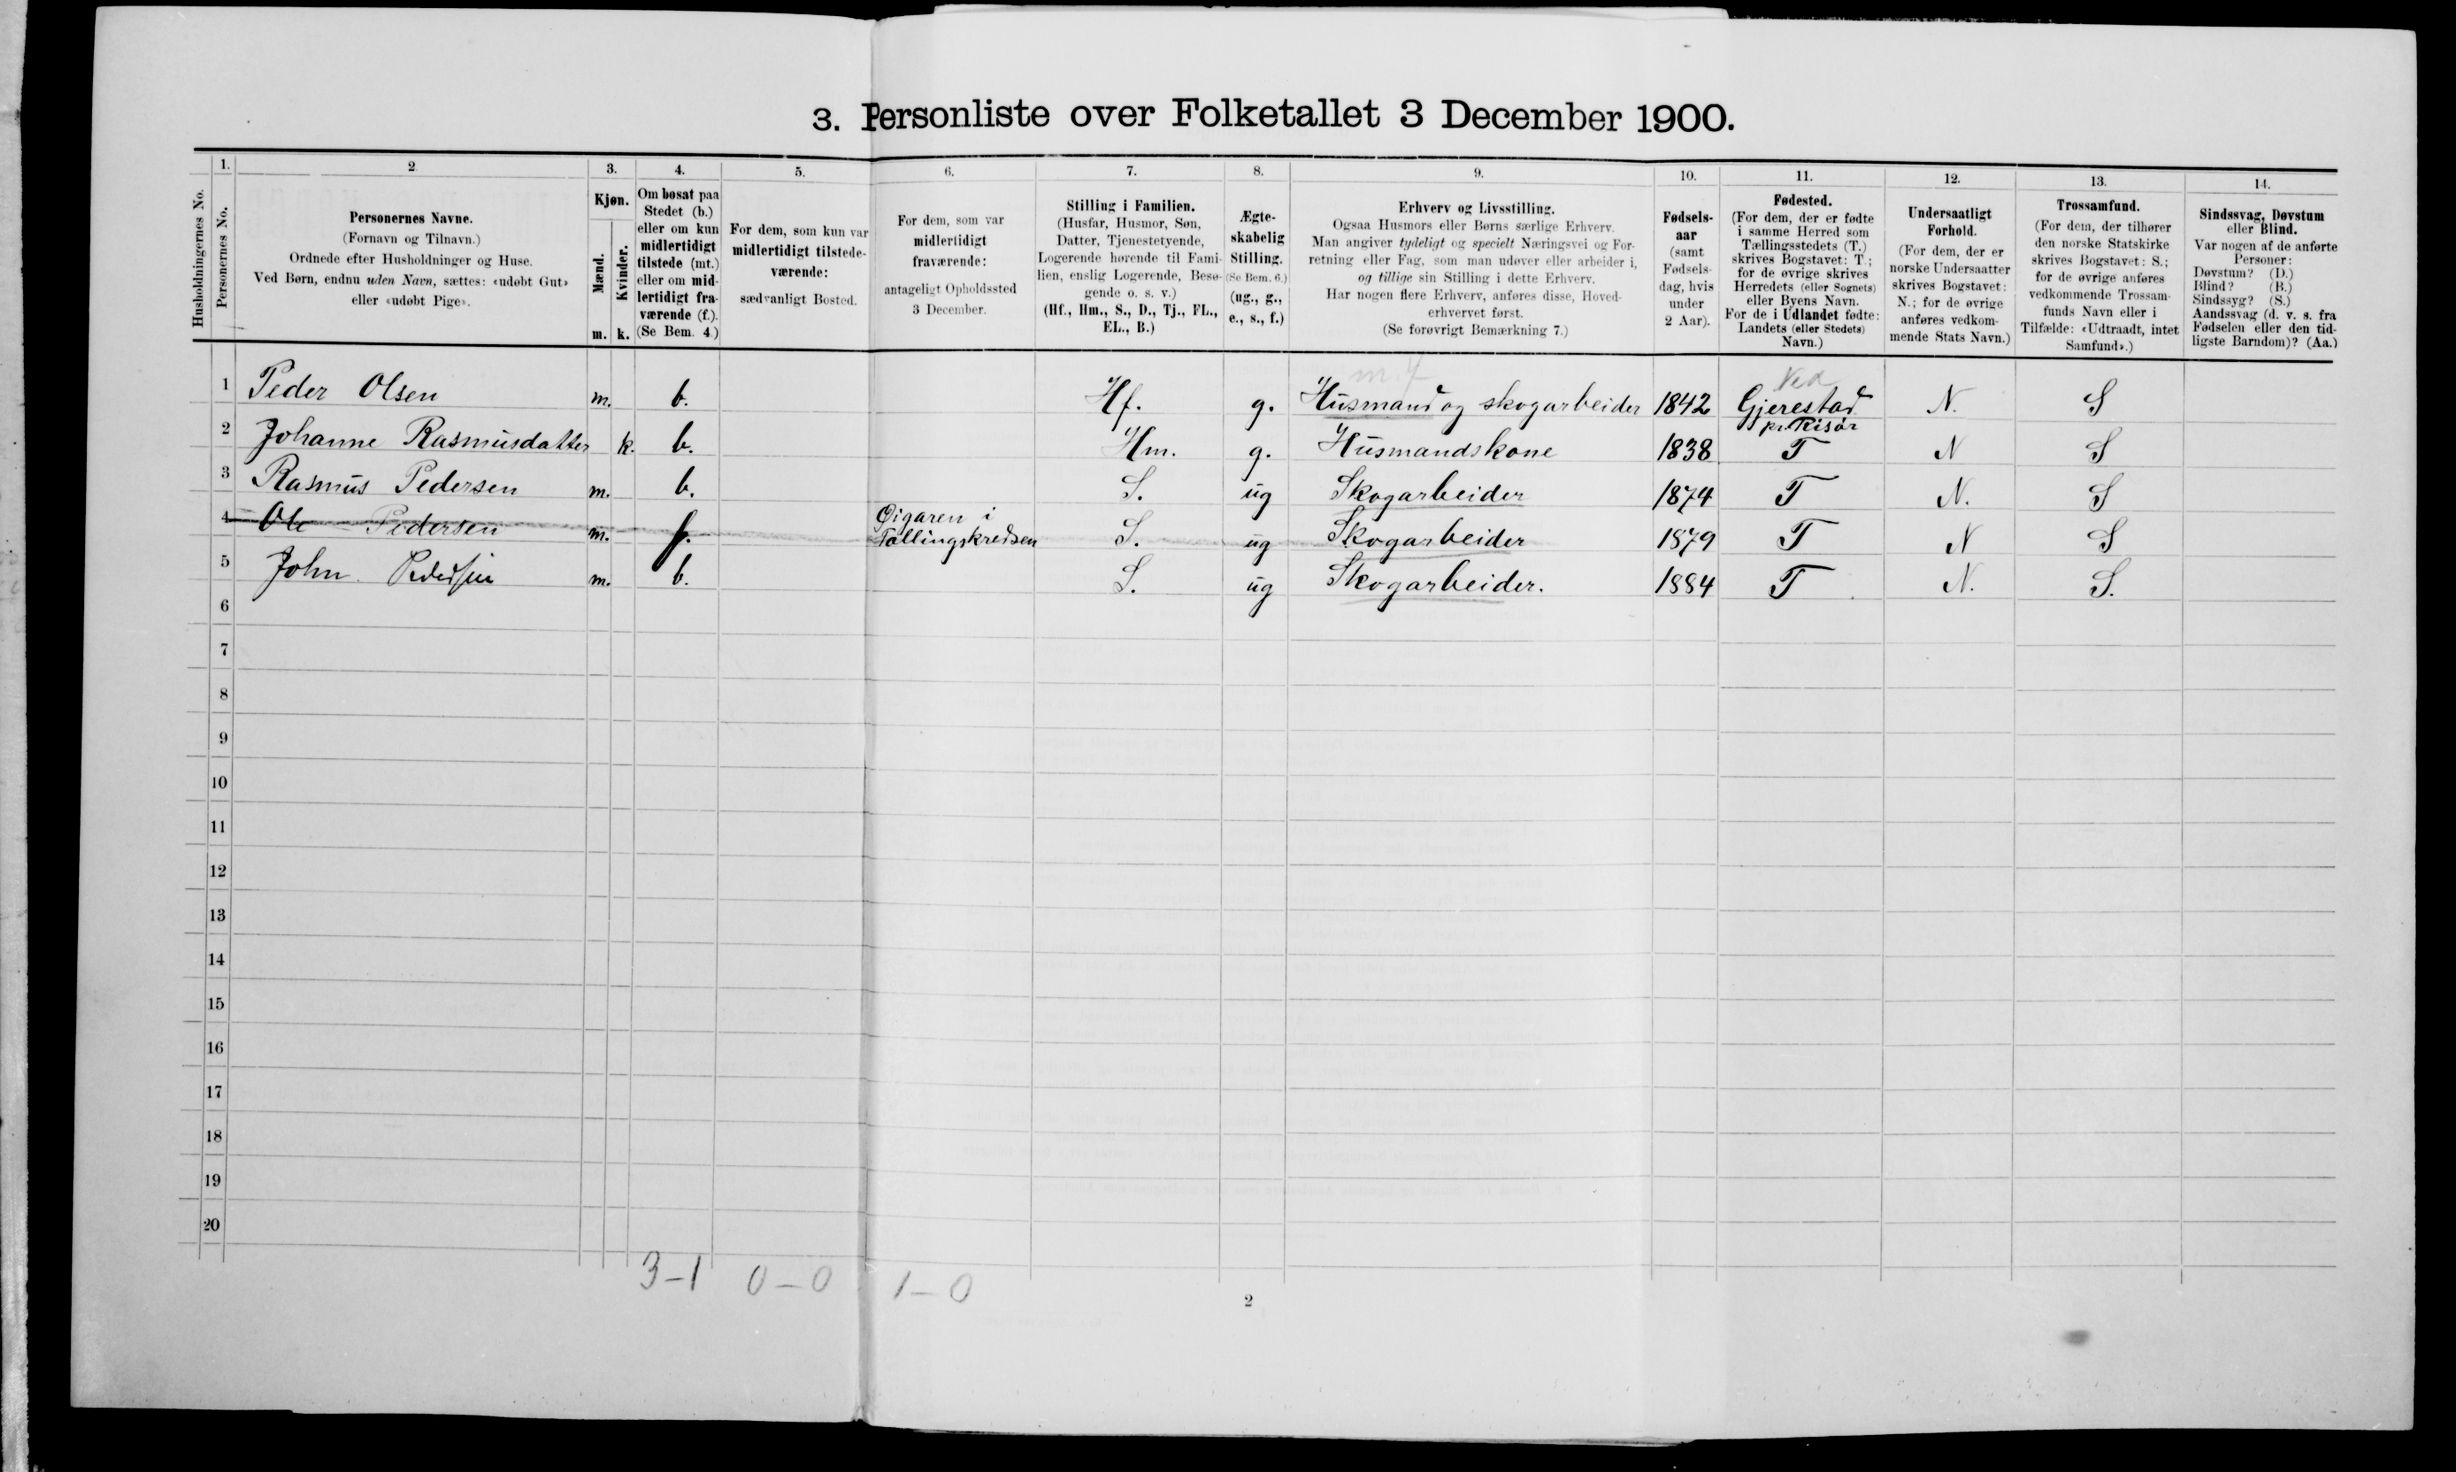 3. Personliste over Folketallet 3 December 1900.
Husholdningernes No.
1.
Personernes No.
2.
Personernes Navne.
(Fornavn og Tilnavn.)
Ordnede efter Husholdninger og Huse.
Ved Børn, endnu uden Navn, sættes: «udøbt Gut»
eller «udøbt Pige».
3.
Kjøn.
Mænd.
Kvinder.
m. k.
4.
Om bosat paa
Stedet (b.)
eller om kun
midlertidigt
tilstede (mt.)
eller om mid-
lertidigt fra-
værende (f.).
(Se Bem. 4.)
5.
For dem, som kun var
midlertidigt tilstede-
værende:
sædvanligt Bosted.
6.
For dem, som var
midlertidigt
fraværende:
antageligt Opholdssted
3 December.
7.
Stilling i Familien.
(Husfar, Husmor, Søn,
Datter, Tjenestetyende,
Logerende hørende til Fami-
lien, enslig Logerende, Besø-
gende o. s. v.)
(Hf., Hm., S., D., Tj., FL.,
EL., B.)
8.
Ægte-
skabelig
Stilling.
(Se Bem. 6.)
(ug., g.,
e., s., f.)
9.
Erhverv og Livsstilling.
Ogsaa Husmors eller Børns særlige Erhverv.
Man angiver tydeligt og specielt Næringsvei og For-
retning eller Fag, som man udøver eller arbeider i,
og tillige sin Stilling i dette Erhverv.
Har nogen flere Erhverv, anføres disse, Hoved-
erhvervet først.
(Se forøvrigt Bemærkning 7.)
10.
Fødsels-
aar
(samt
Fødsels-
dag, hvis
under
2 Aar).
11.
Fødested.
(For dem, der er fødte
i samme Herred som
Tællingsstedets (T.)
skrives Bogstavet: T.;
for de øvrige skrives
Herredets (eller Sognets)
eller Byens Navn.
For de i Udlandet fødte:
Landets (eller Stedets)
Navn.)
12.
Undersaatligt
Forhold.
(For dem, der er
norske Undersaatter
skrives Bogstavet:
N.; for de øvrige
anføres vedkom-
mende Stats Navn.)
13.
Trossamfund.
(For dem, der tilhører
den norske Statskirke
skrives Bogstavet: S.;
for de øvrige anføres
vedkommende Trossam-
funds Navn eller i
Tilfælde: «Udtraadt, intet
Samfund».)
14.
Sindssvag, Døvstum
eller Blind.
Var nogen af de anførte
Personer:
Døvstum? (D.)
Blind? (B.)
Sindssyg? (S.)
Aandssvag (d. v. s. fra
Fødselen eller den tid-
ligste Barndom)? (Aa.)
1 Peder Olsen m. b. Hf. g. Husmand og skogarbeider 1842 Gjerestad N. S
pr. Risør
2 Johanne Rasmusdatter k. b. Hm. g. Husmandskone 1838 T N S
3 Rasmus Pedersen m. b. S. ug Skogarbeider 1874 T N. S
Øigaren i
4 Ole Pedersen m. f. Tællingskredsen S. ug Skogarbeider 1879 T N S
5 John Pedersen m. b. S. ug Skogarbeider. 1884 T N. S.
6
7
8
9
10
11
12
13
14
15
16
17
18
19
20
3-1 0-0 1-0
2